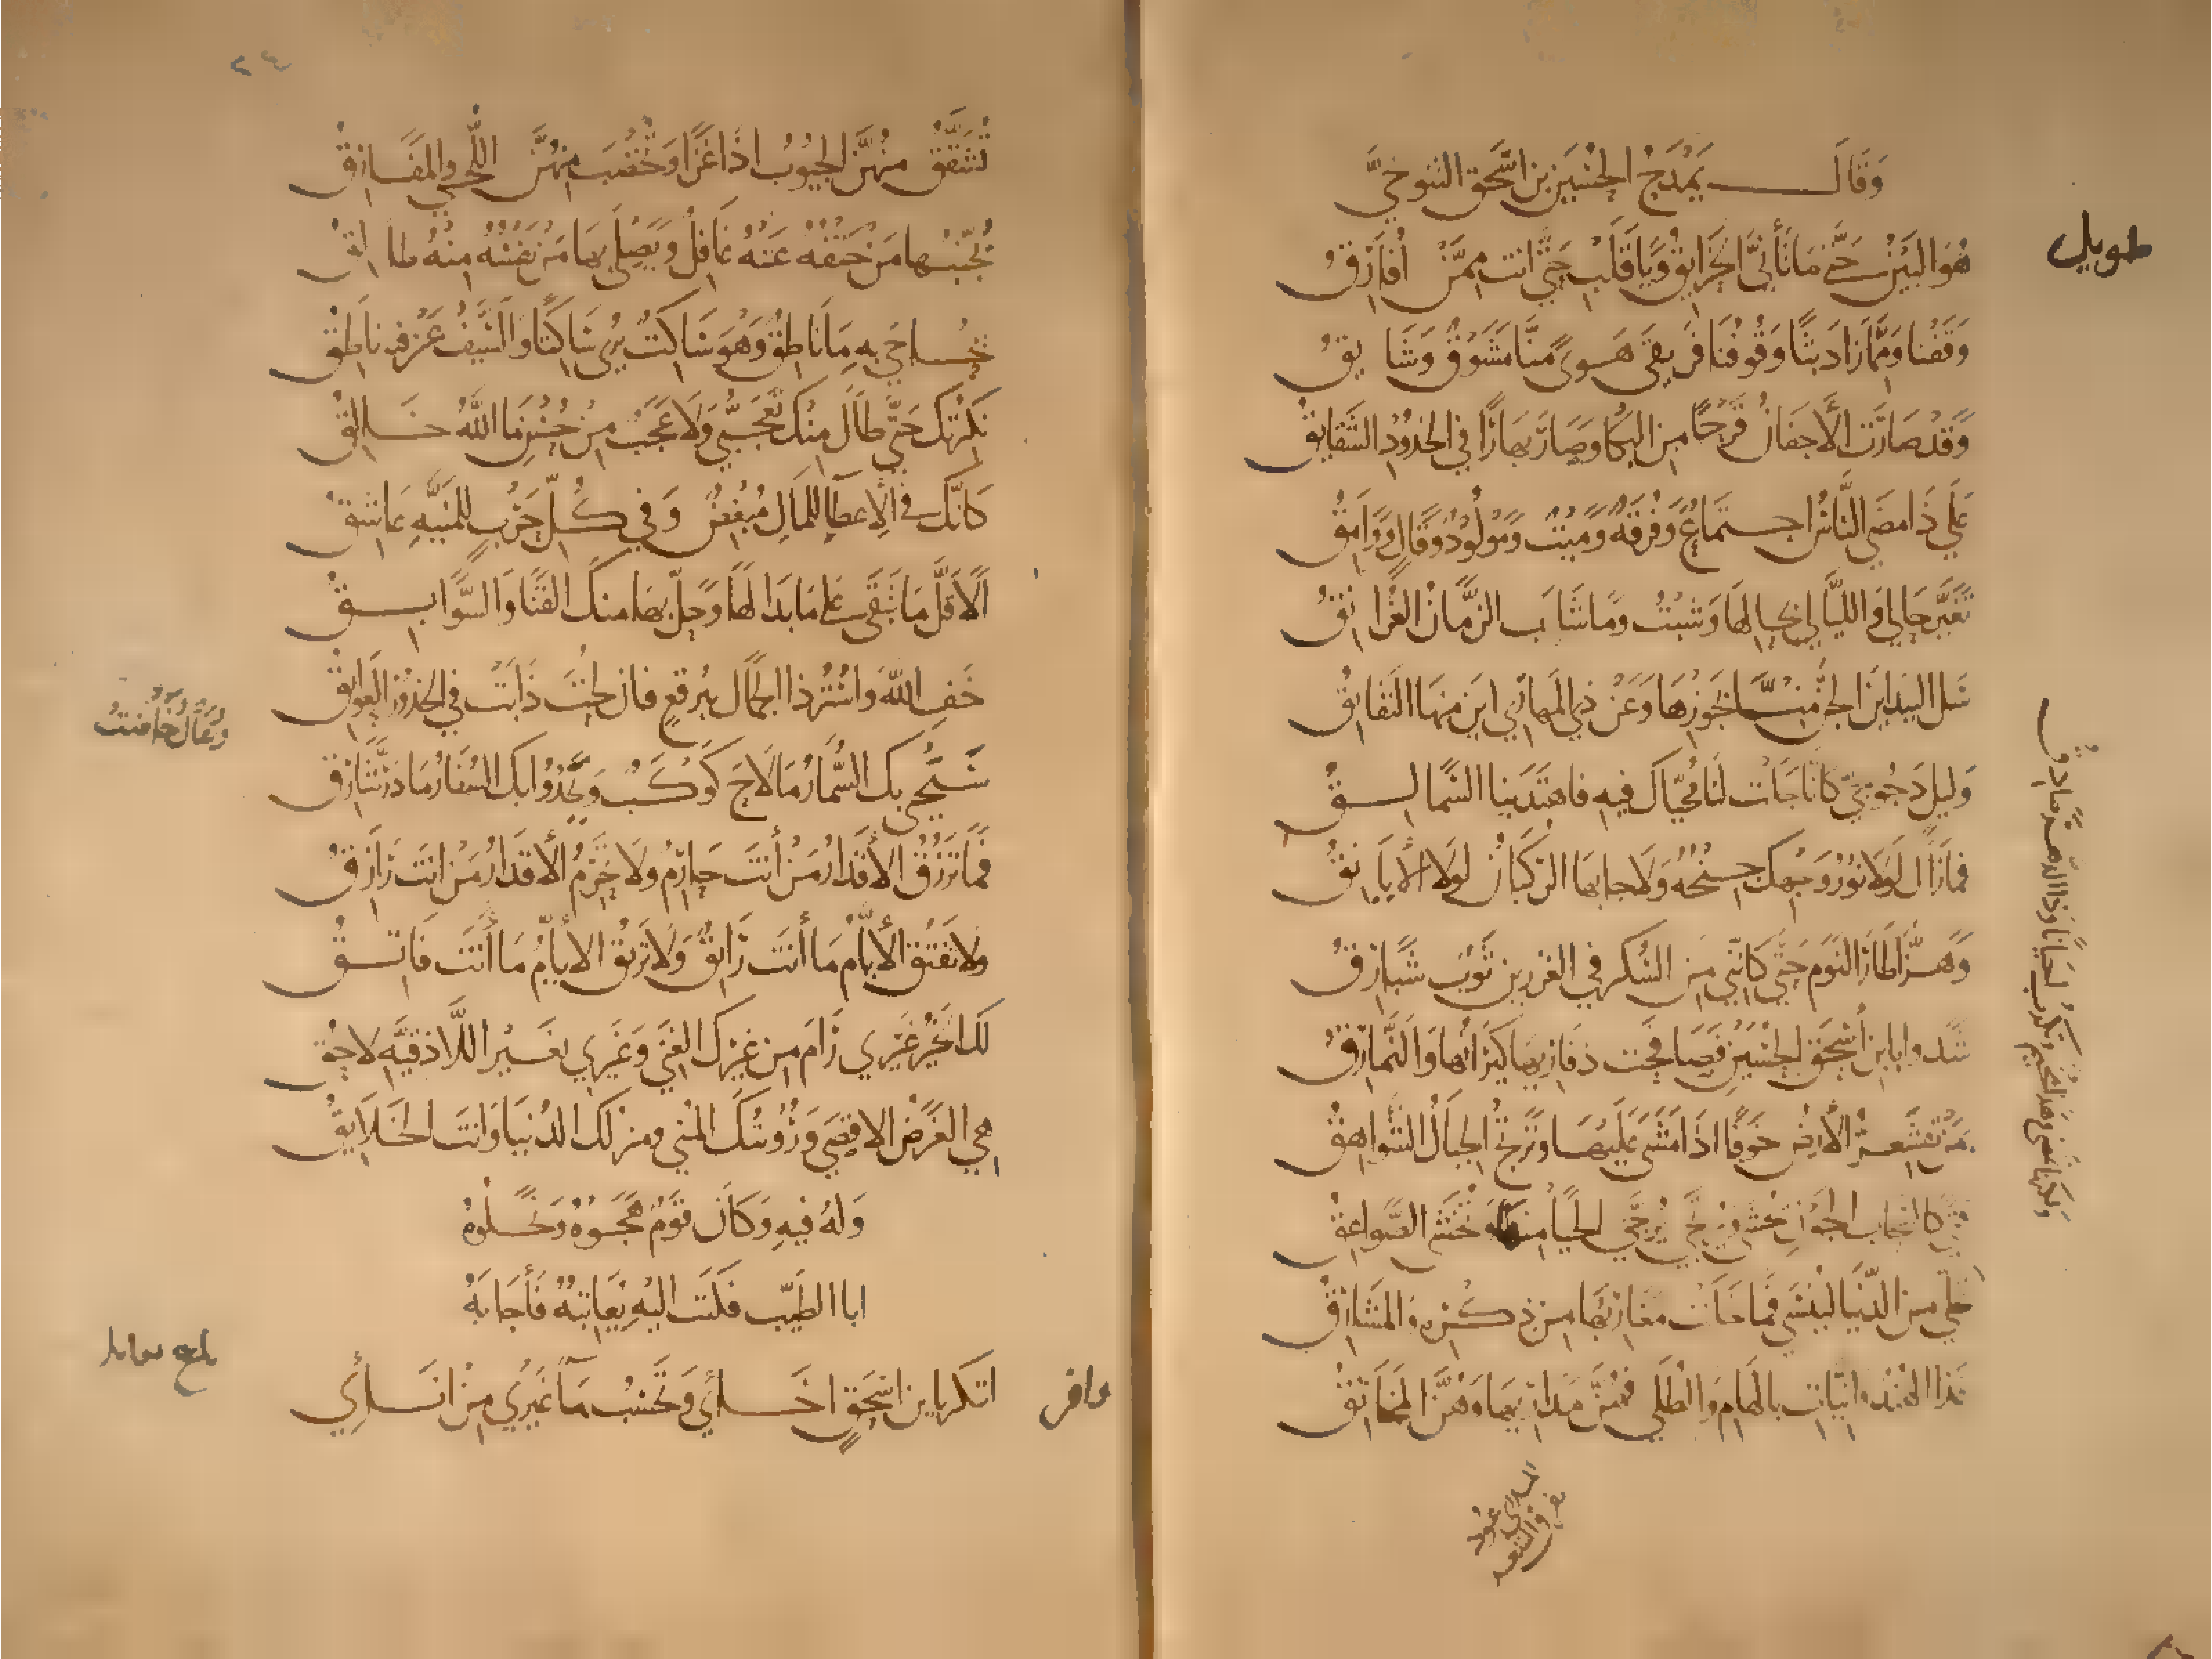 وَقَالَ يَمْدَحُ الحُسَيْنَ بنَ اسْحَقَ التَنُوخيَّ
طويل
هُوَ البَيْنُ حَتّى مَا تَأَنّى الحَزَايِقُ وَيَا قَلْبُ حَتّى انتَ مِمَّنْ افَارِقُ
وَقَفْنا وَمِمَّا زادَ بَثًّا وُقُوفُنَا فَرِيقَيْ هَوىً مِنَّا مَشُوقٌ وَشَايِقُ
وَقَدْ صَارَتِ الأَجفَانُ قَرْحًا مِنَ البُكَا وَصَارَ بَهَارًا في الخدُودِ الشَقَايقُ
عَلَى ذَا مَضَى النَّاسُ اجتِمَاعٌ وَفُرقَةٌ وَمَيْتٌ وَمَوْلُودٌ وَقَالٍ وَوَامِقُ
تَغَيَّرَ حَالِي وَاللَّيَالِي بِحَالِهَا وَشِبْتُ وَمَا شَابَ الزَّمَانُ الغُرَانِقُ
سَلِ البِيدَ ايْنَ الجِنُّ مِنَّا بِجَوْزِهَا وَعَنْ ذِي المَهَارِي اينَ مِنهَا النَقَانِقُ
وَلَيلٍ دَجُوجِيٍّ كَأَنَّا جَلَتْ لَنَا مُحَيَّاكَ فِيهِ فاهتَدَيْنا السَّمالِقُ
فَمَا زَالَ لَوْلَا نُورُ وَجْهِكَ جِنْحُهُ وَلَا جَابَهَا الرُكْبَانُ لَولَا الأَيَانِقُ
وَهَزٌّ اطَارَ النَوْمَ حَتّى كَأَنَّنِي مِنَ السُكْرِ في الغَرزَينِ ثَوْبٌ شُبَارِقُ
شَدَوا بابنِ اسْحَقَ الحُسَيْنِ فَصَافَحَتْ ذَفَارِيَهَا كِيرَانُهَا وَالنَّمَارِقُ
بِمَنْ تَقشَعِرُّ الأَرْضُ خَوفًا اذَا مَشَى عَلَيْهَا وَتَرْتَجُّ الجِبَالُ الشَّوَاهِقُ
فَتًى كالسَّحَابِ الجُونِ يُخْشَى وَيُرتَجَى يُرَجَّى الحَيَا مِنهَا وَتُخْشَى الصَّواعِقُ
وَلَكِنَّهَا تَمْضِي وَهَذَا مُخَيِّمٌ وَتَكْذِبُ أَحْيَانًا وَذَا الدَّهْرَ صَادِقُ
تَخَلَّى مِنَ الدُّنْيَا لِيُنْسَى فَمَا خَلَتْ مَغَارِبُهَا مِن ذِكْرِهِ وَالمَشَارِقُ
غَذَا الهُنْدُوانِيَّاتِ بالهَامِ وَالطُّلَى فَهُنَّ مَدَارِيهَا وَهُنَّ المَخَانِقُ
تُشَقَّقُ مِنْهُنَّ الجُيُوبُ اذَا غَزَا وَتُخْضَبُ مِنْهُنَّ اللِّحَى والمَفَارِقُ
يُجَنَّبُها مَنْ حَتْفُهُ عَنْهُ غَافِلٌ وَيَصْلَى بِهَا مَنْ نَفْسُهُ مِنْهُ طَالِقُ
يُحَاجَى بِهِ مَا نَاطِقٌ وَهْوَ سَاكِتٌ يُرَى سَاكِتًا وَالسَّيْفُ عَنْ فِيهِ نَاطِقُ
نَكِرْتُكَ حَتّى طَالَ مِنْكَ تَعَجُّبِي وَلَا عَجَبٌ مِنْ حُسْنِ مَا اللَّهُ خَالِقُ
كَأَنَّكَ في الإِعطَاءِ لِلمَالِ مُبْغِضٌ وَفي كُلِّ حَرْبٍ لِلمَنِيَّةِ عَاشِقُ
أَلَا قَلَّ مَا تَبْقَى عَلَى مَا بَدَا لَهَا وَحَلَّ بِهَا مِنكَ القَنَا وَالسَّوَابِقُ
خَفِ اللَّهَ وَاسْتُرْ ذَا الجَمَالَ بِبُرقُعٍ فَإن لُحْتَ ذَابَتْ في الخُدُورِ العَوَاتِقُ
وَيُقَالُ حَاضَتْ
سَيُحْيِي بِكَ السُّمَّارُ مَا لَاحَ كَوْكَبٌ وَيَحْدُوا بِكَ السُفَارُ مَا ذَرَّ شَارِقُ
فَمَا تَرْزُقُ الأَقْدَارُ مَنْ أَنتَ حَارِمٌ وَلَا تَحْرِمُ الأَقْدَارُ مَنْ انتَ رَازِقُ
وَلَا تَفْتُقُ الأَيَّامُ مَا أَنتَ رَاتِقٌ وَلَا تَرْتُقُ الأَيَّامُ مَا أَنتَ فَاتِقُ
لَكَ الخَيْرُ غَيْرِي رَامَ مِن غَيْرِكَ الغِنَى وَغَيْرِي بِغَيْرِ اللَّاذِقِيَّةِ لَاحِقُ
هِيَ الغَرَضُ الأَقْصَى وَرُؤْيَتُكَ المُنَى وَمَنْزِلُكَ الدُنْيَا وَانتَ الخَلَايقُ
وَلَهُ فِيهِ وَكَانَ قَوْمٌ هَجَوْهُ وَنَحَلُوهُ
ابا الطَيِّب فَكَتَبَ اليْهِ يُعَاتِبُهُ فَأَجَابَهُ
وافر
اتُنكِرُ يابنَ اسْحَقٍ اخَائي وَتَحْسِبُ مَاءَ غَيْرِي مِنْ انَائِي
بلغ مقابله